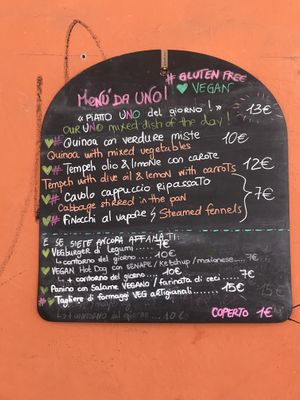 # GLUTEN FREE
♥ VEGAN
MENÙ DA UNO!
« PIATTO UNO del giorno! » 13€
OUR UNO mixed dish of the day!
♥# Quinoa con verdure miste 10€
Quinoa with mixed vegetables
♥# Tempeh olio & limone con carote 12€
Tempeh with olive oil & lemon with carrots
♥# Cavolo cappuccio Ripassato
Cabbage stirred in the pan
7€
♥# Finocchi al vapore / Steamed fennels
E SE SIETE ANCORA AFFAMATI:
♥ VEGburger di Legumi..... 7€
↳ contorno del giorno.... 10€
♥ VEGAN Hot Dog con SENAPE / Ketchup / maionese..... 7€
↳ + contorno del giorno.... 10€
Panino con Salame VEGANO / farinata di ceci..... 7€
♥# Tagliere di formaggi VEG artigianali....... 15€
15€
COPERTO 1€
↳ + contorno del giorno... 10€